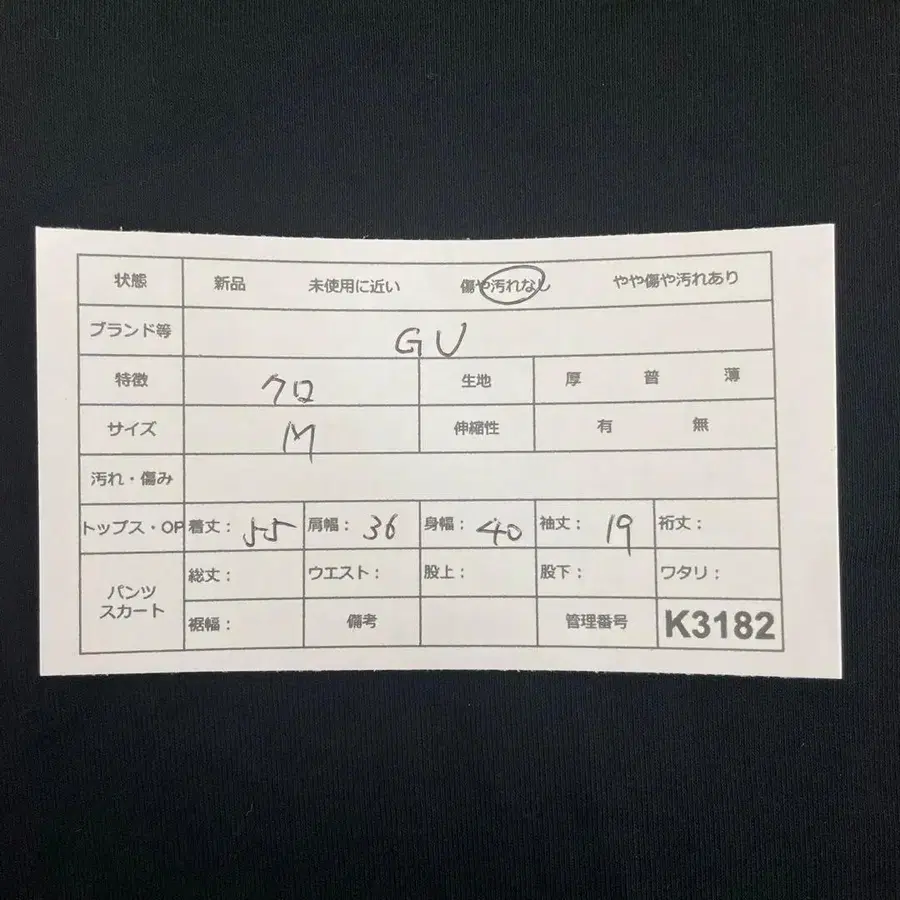 状態 新品 未使用に近い 傷や汚れなし やや傷や汚れあり
ブランド等 GU
特徴 クロ 生地 厚 普 薄
サイズ M 伸縮性 有 無
汚れ・傷み
トップス・OP 着丈: 55 肩幅: 36 身幅: 40 袖丈: 19 裄丈:
パンツ スカート 総丈: ウエスト: 股上: 股下: ワタリ:
裾幅: 備考 管理番号 K3182